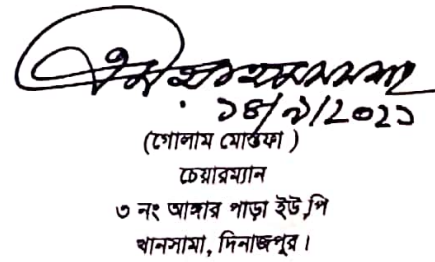 ১৪/৯/২০২১
(গোলাম মোস্তফা)
চেয়ারম্যান
৩ নং আঙ্গার পাড়া ইউ,পি
খানসামা, দিনাজপুর।